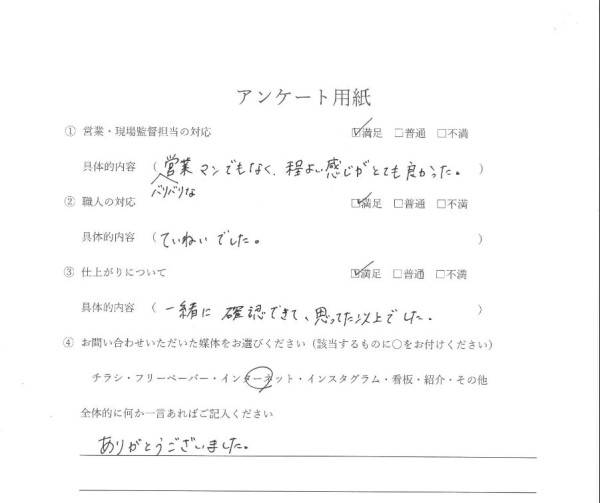 アンケート用紙
① 営業・現場監督担当の対応 ☑満足 □普通 □不満
具体的内容 （ 営業マンでもなく、程よい感じがとても良かった。 ）
バリバリな
② 職人の対応 ☑満足 □普通 □不満
具体的内容 （ ていねいでした。 ）
③ 仕上がりについて ☑満足 □普通 □不満
具体的内容 （ 一緒に確認できて、思ってた以上でした。 ）
④ お問い合わせいただいた媒体をお選びください（該当するものに〇をお付けください）
チラシ・フリーペーパー・インターネット・インスタグラム・看板・紹介・その他
全体的に何か一言あればご記入ください
ありがとうございました。